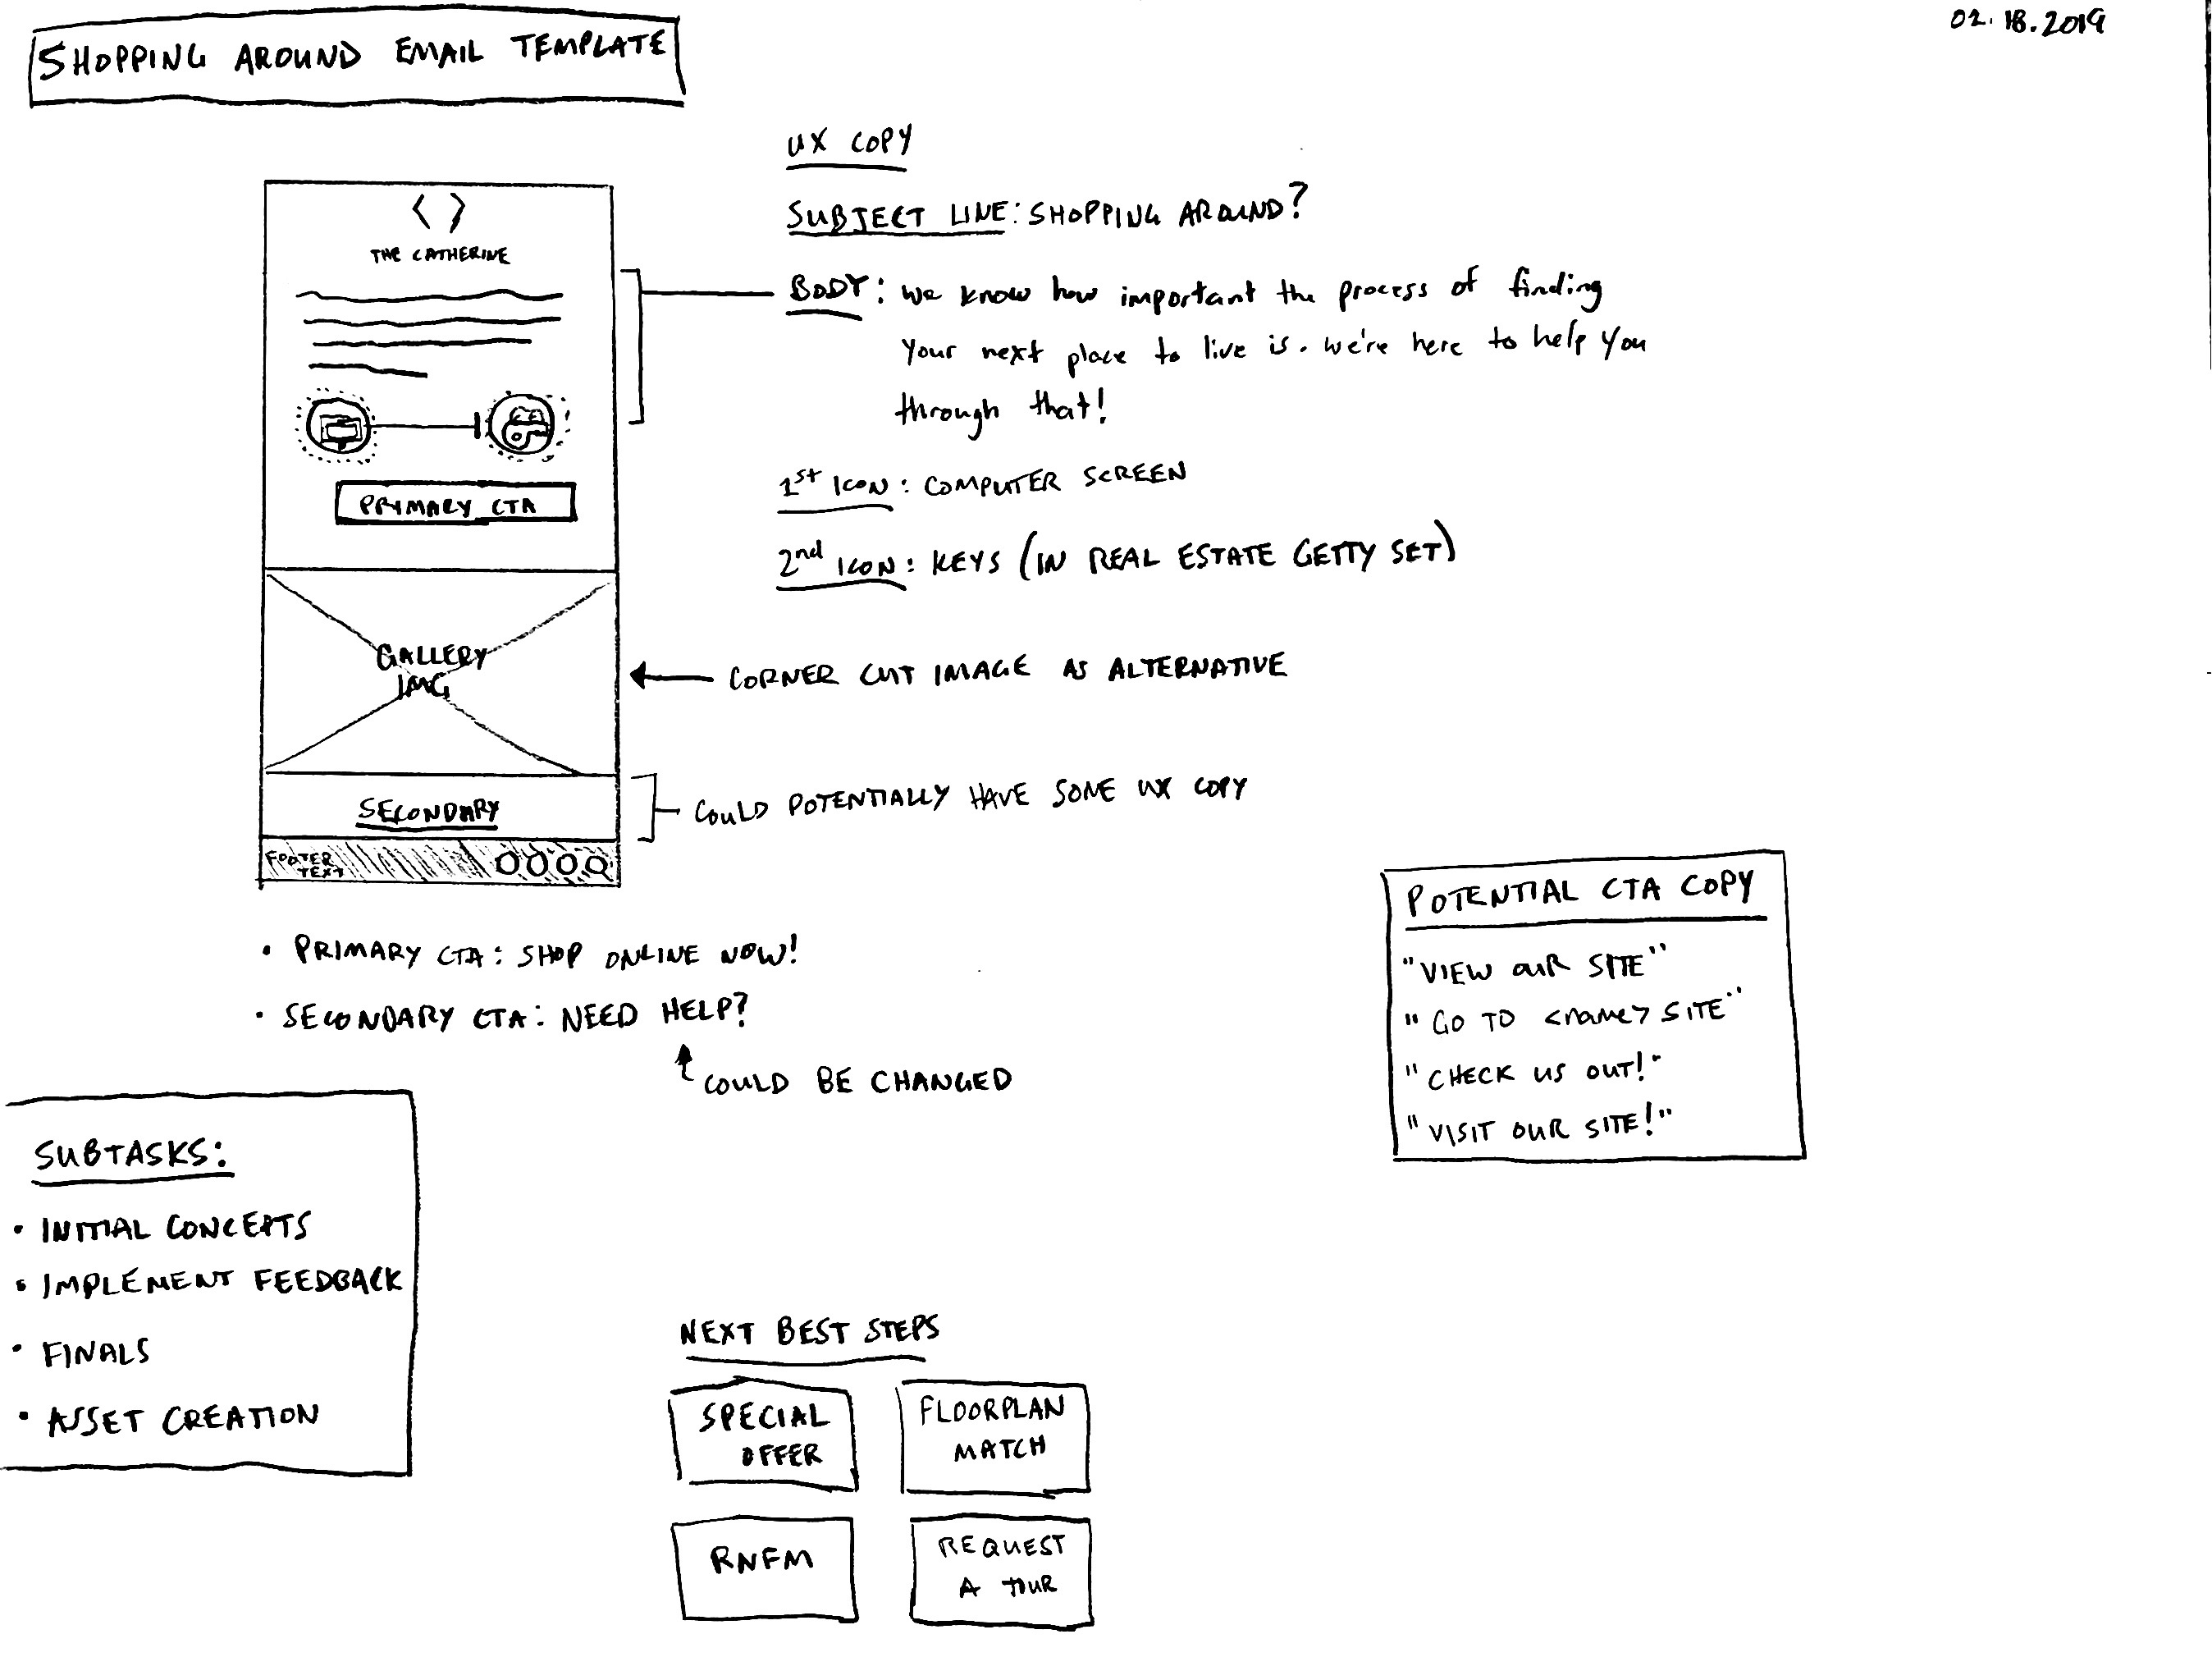 SHOPPING AROUND EMAIL TEMPLATE
02.18.2019
THE CATHERINE
PRIMARY CTA
GALLERY
IMG
SECONDARY
FOOTER
TEXT
UX COPY
SUBJECT LINE: SHOPPING AROUND?
BODY: we know how important the process of finding
your next place to live is. we're here to help you
through that!
1st ICON: COMPUTER SCREEN
2nd ICON: KEYS (IN REAL ESTATE GETTY SET)
CORNER CUT IMAGE AS ALTERNATIVE
COULD POTENTIALLY HAVE SOME UX COPY
• PRIMARY CTA: SHOP ONLINE NOW!
• SECONDARY CTA: NEED HELP?
COULD BE CHANGED
POTENTIAL CTA COPY
"VIEW OUR SITE"
"GO TO <name> SITE"
"CHECK US OUT!"
"VISIT OUR SITE!"
SUBTASKS:
• INITIAL CONCEPTS
• IMPLEMENT FEEDBACK
• FINALS
• ASSET CREATION
NEXT BEST STEPS
SPECIAL
OFFER
FLOORPLAN
MATCH
RNFM
REQUEST
A TOUR